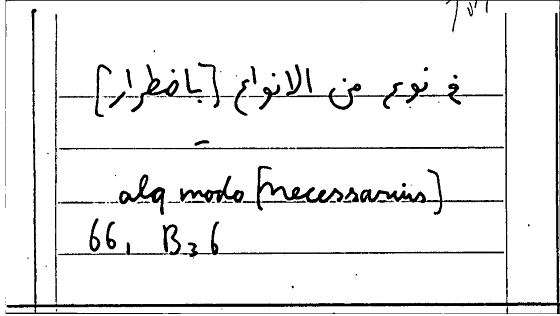 في نوع من الانواع [باضطرار]
–
alq modo [necessarius]
66, B36